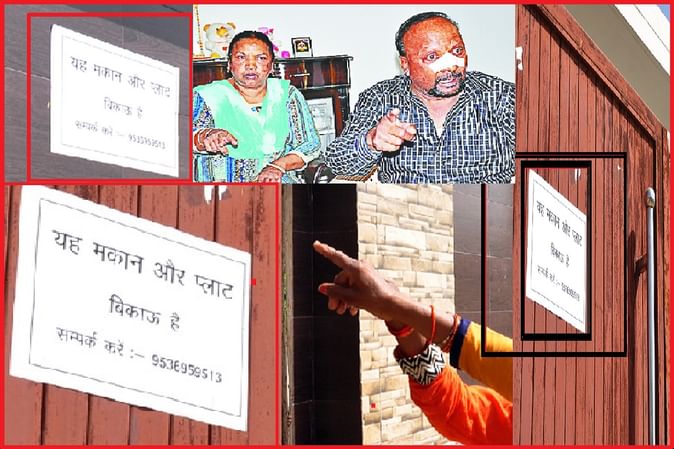 यह मकान और प्लाट
बिकाऊ है
सम्पर्क करें :- 9536959513
यह मकान और प्लाट
बिकाऊ है
सम्पर्क करें :- 9536959513
यह मकान और प्लाट
बिकाऊ है
सम्पर्क करें :- 9536959513